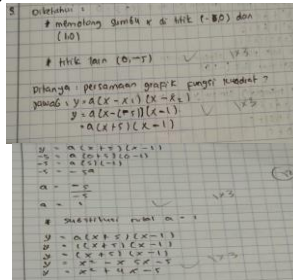 5 Diketahui :
* memotong sumbu x di titik (-5,0) dan
(1,0)
* titik lain (0,-5)
Ditanya : persamaan grafik fungsi kuadrat ?
Jawab : y = a(x - x₁)(x - x₂)
y = a(x-(-5))(x-1)
= a(x+5)(x-1)
y = a(x+5)(x-1)
-5 = a(0+5)(0-1)
-5 = a(5)(-1)
-5 = -5a
a = -5
-5
a = 1
* substitusi nilai a = 1
y = a(x+5)(x-1)
y = 1(x+5)(x-1)
y = (x+5)(x-1)
y = x² - x 5x - 5
y = x² + 4x - 5